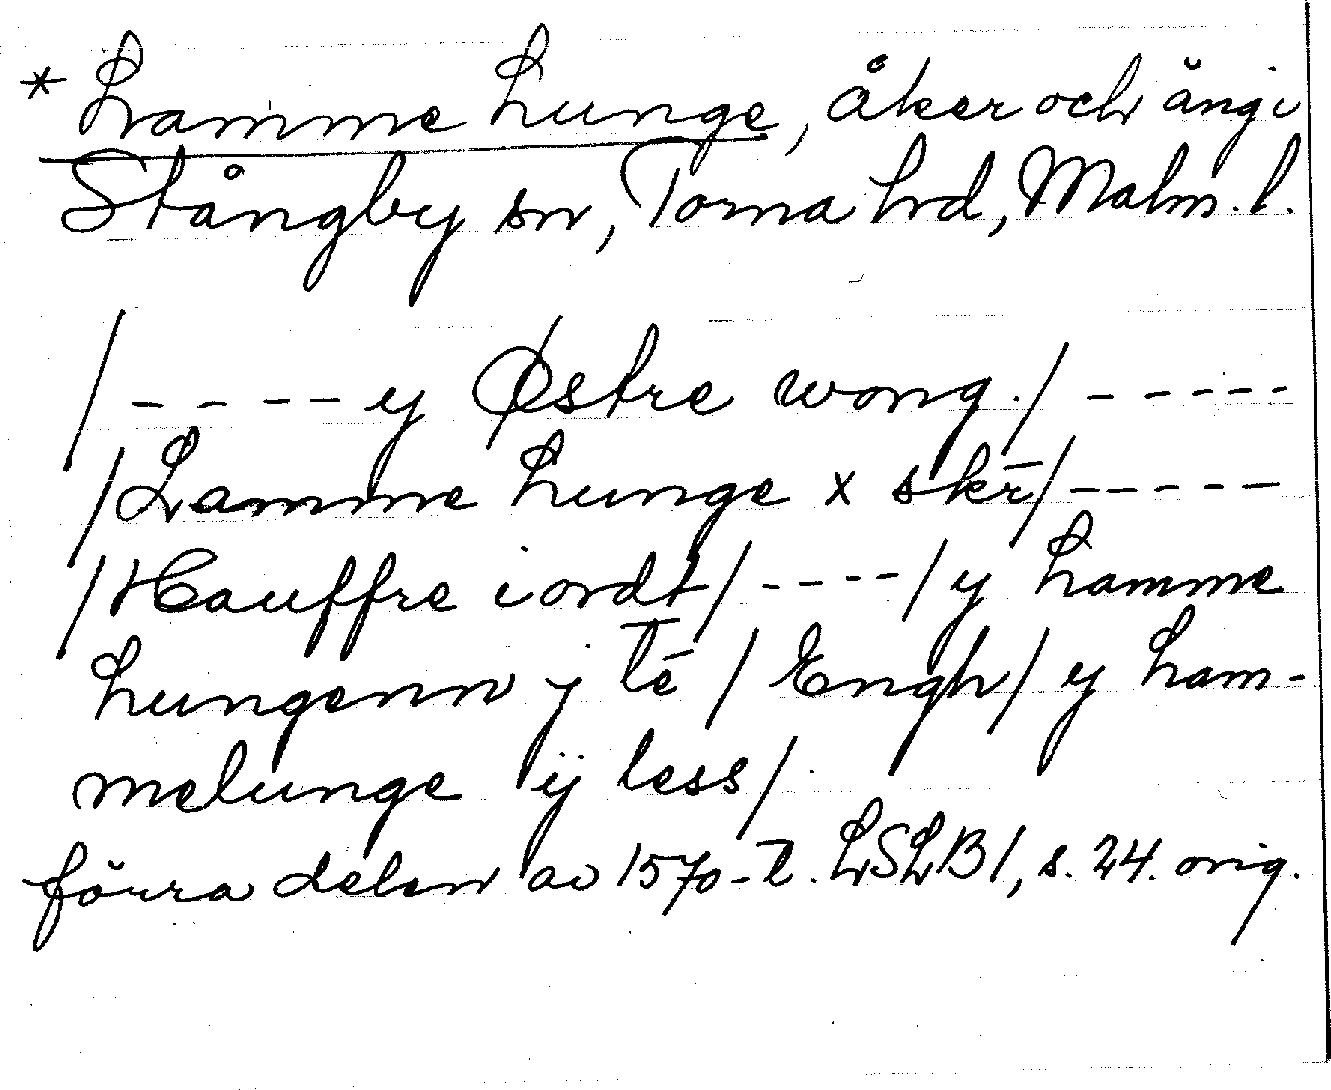 * Lamme Lunge, åker och äng i
Stångby sn, Torna hrd, Malm. l.
/ - - - - y Østre wong./ - - - - -
/Lamme Lunge x skr̄/ - - - - -
/Hauffre iordt/ - - - - / y Lamme
Lungenn y Te / Engh / y Lam-
melunge ÿ less/.
förra delen av 1570-t. LSLB1, s. 24. orig.